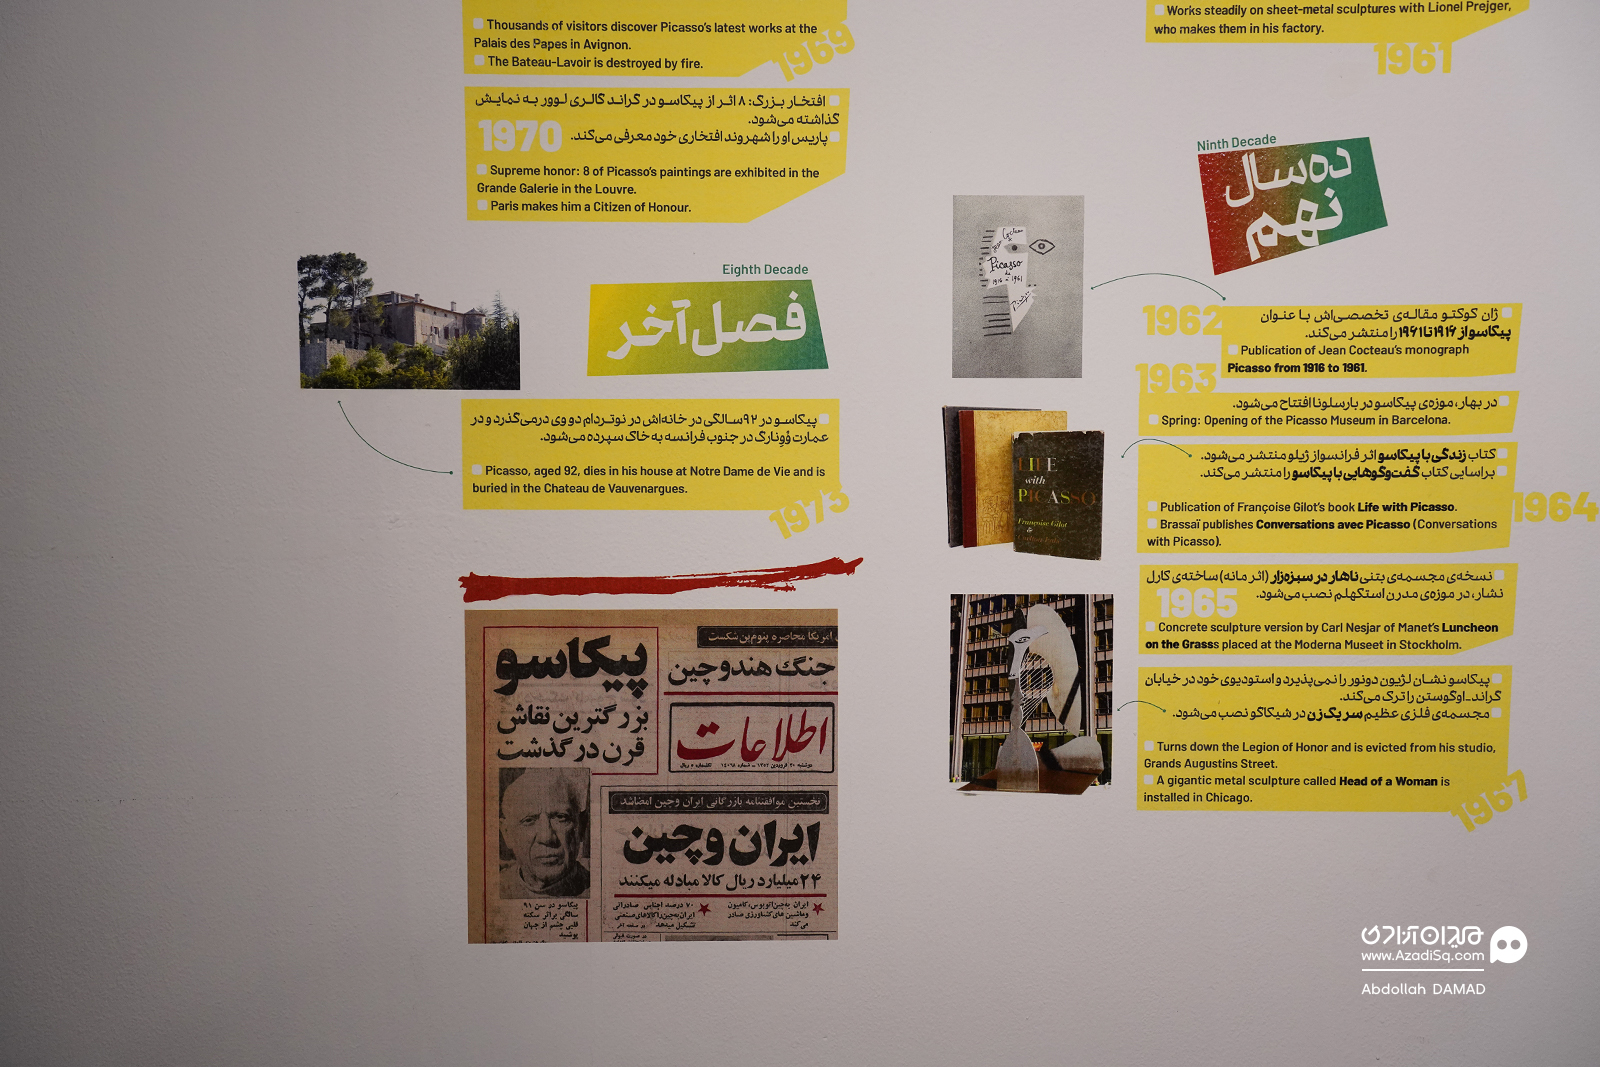 Thousands of visitors discover Picasso's latest works at the
Palais des Papes in Avignon.
The Bateau-Lavoir is destroyed by fire.
1969
افتخار بزرگ: ۸ اثر از پیکاسو در گراند گالری لوور به نمایش
گذاشته می‌شود.
پاریس او را شهروند افتخاری خود معرفی می‌کند.
1970
Supreme honor: 8 of Picasso's paintings are exhibited in the
Grande Galerie in the Louvre.
Paris makes him a Citizen of Honour.
Eighth Decade
فصل آخر
پیکاسو در ۹۲سالگی در خانه‌اش در نوتردام دو وی درمی‌گذرد و در
عمارت وُوِنارگ در جنوب فرانسه به خاک سپرده می‌شود.
Picasso, aged 92, dies in his house at Notre Dame de Vie and is
buried in the Chateau de Vauvenargues.
1973
پیکاسو
بزرگترین نقاش
قرن درگذشت
پیکاسو در سن ۹۱
سالگی براثر سکته
قلبی چشم از جهان
پوشید
امریکا محاصره پنوم‌پن شکست
جنگ هندوچین
اطلاعات
نخستین موافقتنامه بازرگانی ایران وچین امضاشد
ایران وچین
۲۴میلیارد ریال کالا مبادله میکنند
ایران به‌چین‌اتوبوس،کامیون
وماشین های‌کشاورزی صادر
می‌کند
۷۰ درصد اجناس صادراتی
ایران‌به‌چین‌راکالاهای‌صنعتی
تشکیل میدهد
Works steadily on sheet-metal sculptures with Lionel Prejger,
who makes them in his factory.
1961
Ninth Decade
ده سال
نهم
Jean Cocteau
Picasso
de
1916 à 1961
Picasso
1962
ژان کوکتو مقاله‌ی تخصصی‌اش با عنوان
پیکاسو از ۱۹۱۶ تا ۱۹۶۱ را منتشر می‌کند.
Publication of Jean Cocteau's monograph
Picasso from 1916 to 1961.
1963
در بهار، موزه‌ی پیکاسو در بارسلونا افتتاح می‌شود.
Spring: Opening of the Picasso Museum in Barcelona.
LIFE
with
PICASSO
Françoise Gilot
&
Carlton Lake
کتاب زندگی با پیکاسو اثر فرانسواز ژیلو منتشر می‌شود.
براسایی کتاب گفت‌وگوهایی با پیکاسو را منتشر می‌کند.
1964
Publication of Françoise Gilot's book Life with Picasso.
Brassaï publishes Conversations avec Picasso (Conversations
with Picasso).
نسخه‌ی مجسمه‌ی بتنی ناهار در سبزه‌زار (اثر مانه) ساخته‌ی کارل
نشار، در موزه‌ی مدرن استکهلم نصب می‌شود.
1965
Concrete sculpture version by Carl Nesjar of Manet's Luncheon
on the Grasss placed at the Moderna Museet in Stockholm.
پیکاسو نشان لژیون دونور را نمی‌پذیرد و استودیوی خود در خیابان
گراند-اوگوستن را ترک می‌کند.
مجسمه‌ی فلزی عظیم سر یک زن در شیکاگو نصب می‌شود.
Turns down the Legion of Honor and is evicted from his studio,
Grands Augustins Street.
A gigantic metal sculpture called Head of a Woman is
installed in Chicago.
1967
میدان آزادی
www.AzadiSq.com
Abdollah DAMAD